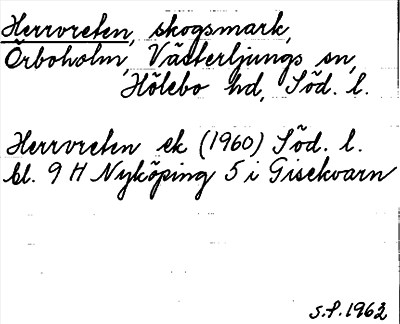 Herrvreten, skogsmark,
Örboholm, Västerljungs sn,
Hölebo hd, Söd. l.
Herrvreten ek (1960) Söd. l.
bl. 9 H Nyköping 5 i Gisekvarn
S.P. 1962